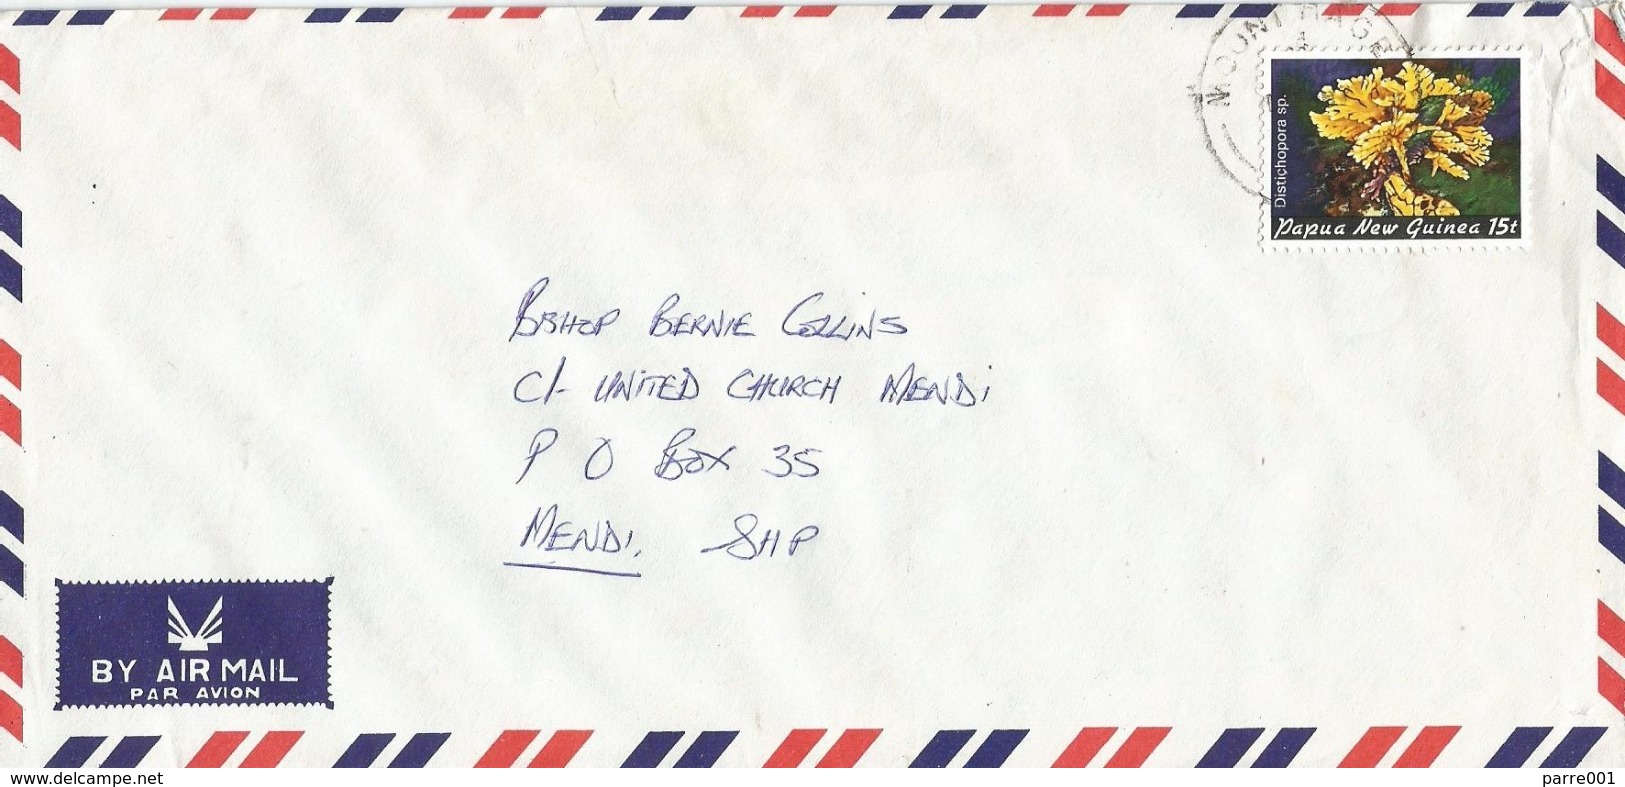 MOUNT HAGE
Distichopora sp.
Papua New Guinea 15t
BISHOP BERNIE COLLINS
C/- UNITED CHURCH MENDI
P O BOX 35
MENDI, SHP
BY AIR MAIL
PAR AVION
www.delcampe.net
parre001